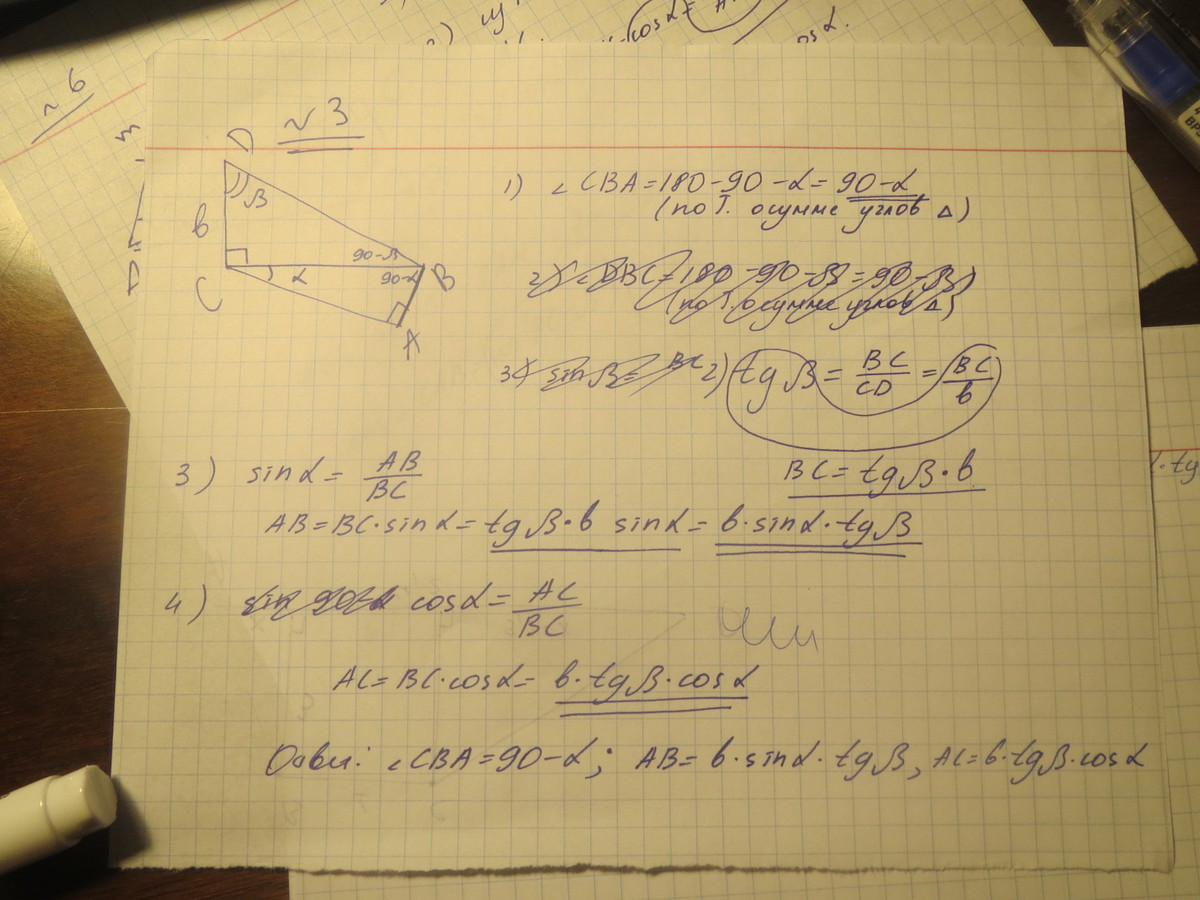 ~ 6
№ 3
D
β
b
90-β
C
α
90-α
B
A
1) ∠ CBA = 180 - 90 - α = 90 - α
(по Т. о сумме углов Δ)
2) ∠ DBC = 180 - 90 - β = 90 - β
(по Т. о сумме углов Δ)
3) sin β = BC 2) tg β = BC/CD = BC/b
BC = tg β · b
3) sin α = AB/BC
AB = BC · sin α = tg β · b sin α = b · sin α · tg β
4) sin 90-α cos α = AC/BC
AC = BC · cos α = b · tg β · cos α
∠ CBA = 90 - α; AB = b · sin α · tg β, AC = b · tg β · cos α
cos α =
cos α.
· tg